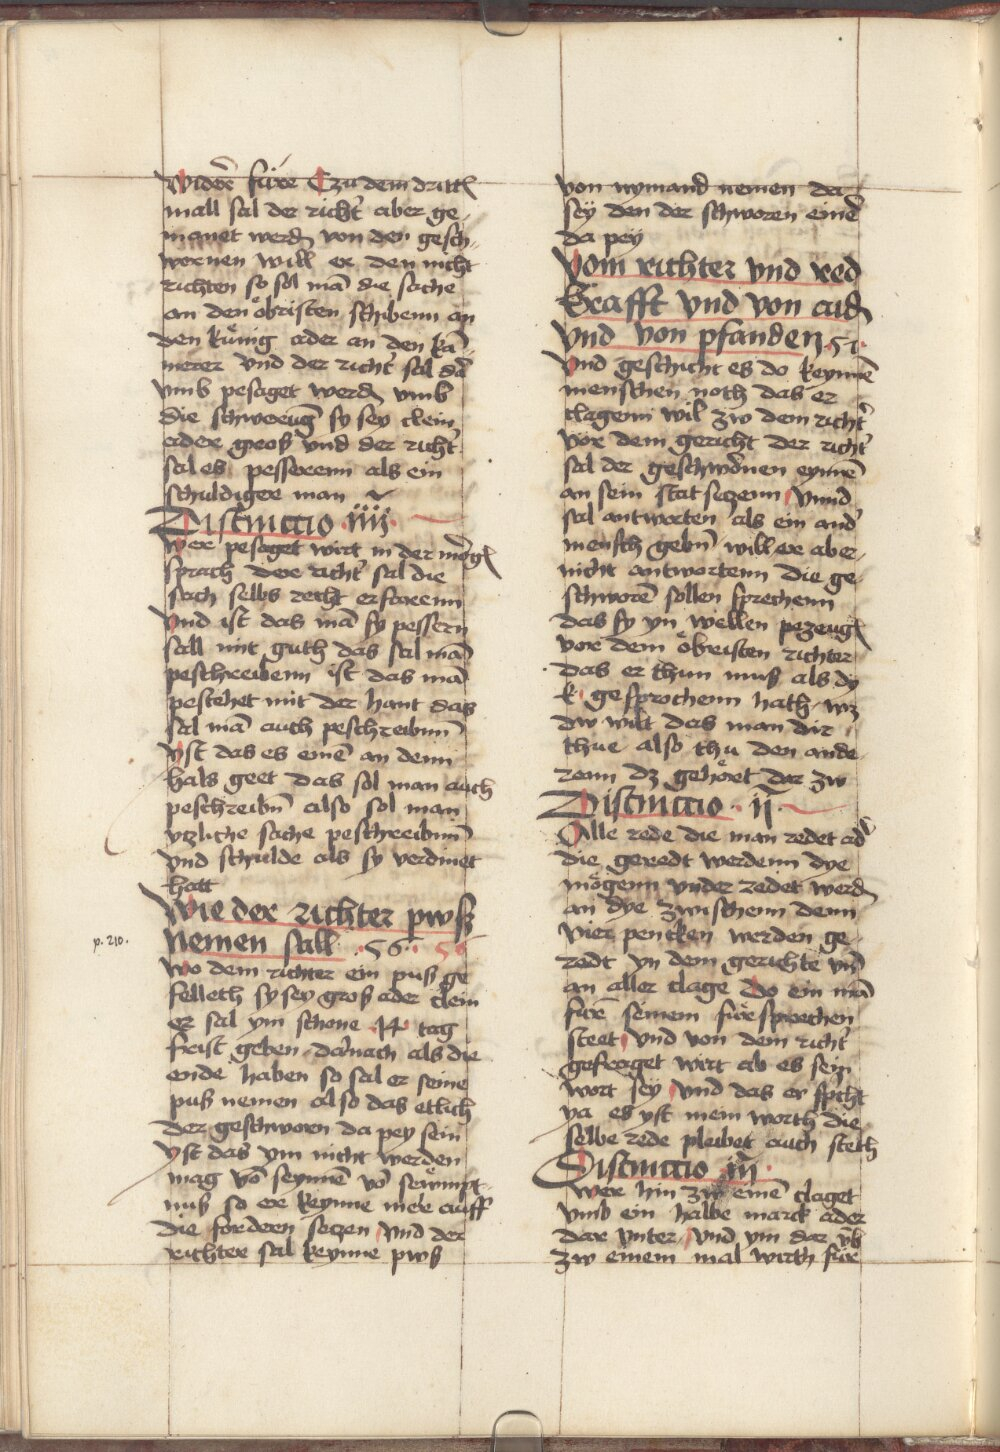 widere͂ fure Czu dem dritte͂
mall sal der richt' aber ge-
manet werd͂ von den gesch-
wornen will er den nicht
richten so sol ma͂ die sache
an den obristen schibenn an
den kunig ader an den ka͂-
merer vnd der richt' sal da͂
vmb pesaget werd͂ vmb
die schwerug͂ sy sey clein
ader groß vnd der richt'
sal es pesserenn als ein
schuldiger man
Distinccio iiii
wer pesaget wirt in der morge͂
sprach der richt' sal die
sach selbs recht erfarenn
Vnd ist das ma͂ sy pessern
sall mit guth das sal ma͂
peschreibenn ist das ma͂
pestehet mit der hant das
sal ma͂ auch peschreibnn
yst das es eine͂ an denn
hals geet das sol man auch
peschreibn͂ also sol man
ytzliche sache peschreibnn
vnd schulde als sy verdinet
hatt
Wie der richter pwß
nemen sall 56 56
p. 210.
Wo dem richter ein puß ge
felleth sy sey groß ader clein
er sal ym schone 14 tag
frist geben darnach als die
ende haben so sal er seine
puß nemen also das etlich
der geschworn da pey sein
yst das ym nicht werden
mag vo͂ seynne͂ v͂
nuß so er keynne mer auff
die fordern setzen vnd der
richter sal keynne pwß
von nymand nemen da
sey den der schworen eine͂
da pey
Vom richter vnd red
krafft vnd von aid͂
vnd von pfanden 57
Vnd geschicht es do keynne͂
menschen noth das er
clagenn wil zw dem richt'
vor dem gericht der richt'
sal der geschwornen eynne͂
an sein stat setzenn Vnnd
sal antworten als ein and'
mensch gebn͂ will er aber
nicht antwortenn die ge-
schwore͂ sollen sprechenn
das sy yn wellen pezeuge͂
vor dem obristen richter
das er thun muß als dy
k gesprochenn hath wz
dw wilt das man dir
thue also thu den ande
renn dz gehoret dar zw
Distinccio ii
Alle rede die man redet ad'
die geredt werdenn dye
mögenn vnder redet werd͂
an dye zwischenn denn
vier pencken werden ge-
redt yn dem gerichte vn͂
an aller clage Do ein ma͂
fure͂ seinem fursprechen
steet vnd von dem richt'
gefraget wirt ab es sein
wort sey Vnd das er spricht
ya es yst mein worth die
selbe rede pleibet auch steth
Distinccio iii
Wer hin zw eine͂ claget
vmb ein halbe marck ader
dar vnter Vnd ym dar vb͂
zw einem mal wirth fure